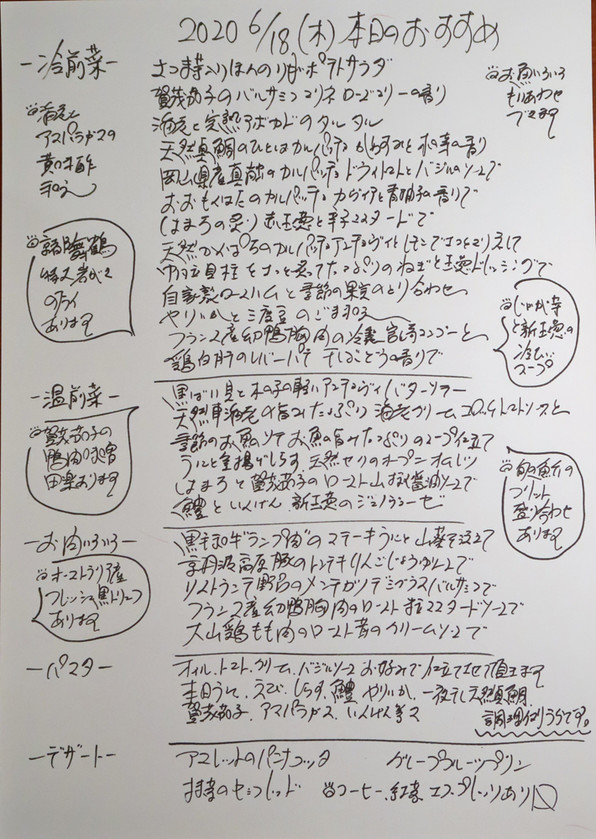 2020 6/18.(木)本日のおすすめ
ー冷前菜ー
さつま芋入りほんのりポテトサラダ
賀茂茄子のバルサミコマリネ ローズマリーの香り
海老と完熟アボカドのタルタル
天然真鯛のカルパッチョ 木の芽の香り
岡山県産真蛸のカルパッチョ ドライトマトとバジルのソースで
カルパッチョ 香りで
はまちの炙り 赤玉葱と辛子マスタードで
天然かんぱちのカルパッチョ アンチョヴィと
帆立貝柱をさっと炙って たっぷりのねぎと玉葱ドレッシングで
自家製ロースハムと季節の果実のとり合わせ
やりいかと三度豆のごま和え
フランス産幼鴨胸肉の冷製 宮崎マンゴーと
鶏白肝のレバーパテ 干しぶどうの香りで
海老と
アスパラガスの
黄味酢
和え
舞鶴
あります
お魚いろいろ
もりあわせ
できます
じゃが芋
と新玉葱の
冷たい
スープ
ー温前菜ー
黒ばい貝と木の子の軽いアンチョヴィバターソテー
天然車海老の旨みたっぷり 海老クリームコロッケ トマトソースと
季節のお魚のソテー お魚の旨みたっぷりのスープ仕立て
うにと釜揚げしらす、天然せりのオープンオムレツ
はまちと賀茂茄子のロースト 山椒醤油ソースで
鱧といんげん 新玉葱のジェノヴェーゼ
賀茂茄子の
鴨肉のお味噌
田楽あります
旬の魚介の
フリット
盛り合わせ
あります
ーお肉いろいろー
黒毛和牛"ランプ肉"のステーキ うにと山葵を添えて
京丹波高原豚のトンテキ りんごしょうがソースで
リストランテ野呂のメンチカツ デミグラスバルサミコで
フランス産幼鴨胸肉のロースト 粒マスタードソースで
大山鶏もも肉のロースト 茸のクリームソースで
オーストラリア産
フレッシュ黒トリュフ
あります
ーパスター
オイル、トマト、クリーム、バジルソース お好みで仕立てさせて頂きます
本日うに、えび、しらす、鱧 やりいか、一夜干し天然真鯛、
賀茂茄子、アスパラガス、いんげん等々
調理例うらです。
ーデザートー
アプリコットのパンナコッタ グレープフルーツプリン
抹茶のセミフレッド コーヒー、紅茶、エスプレッソあり